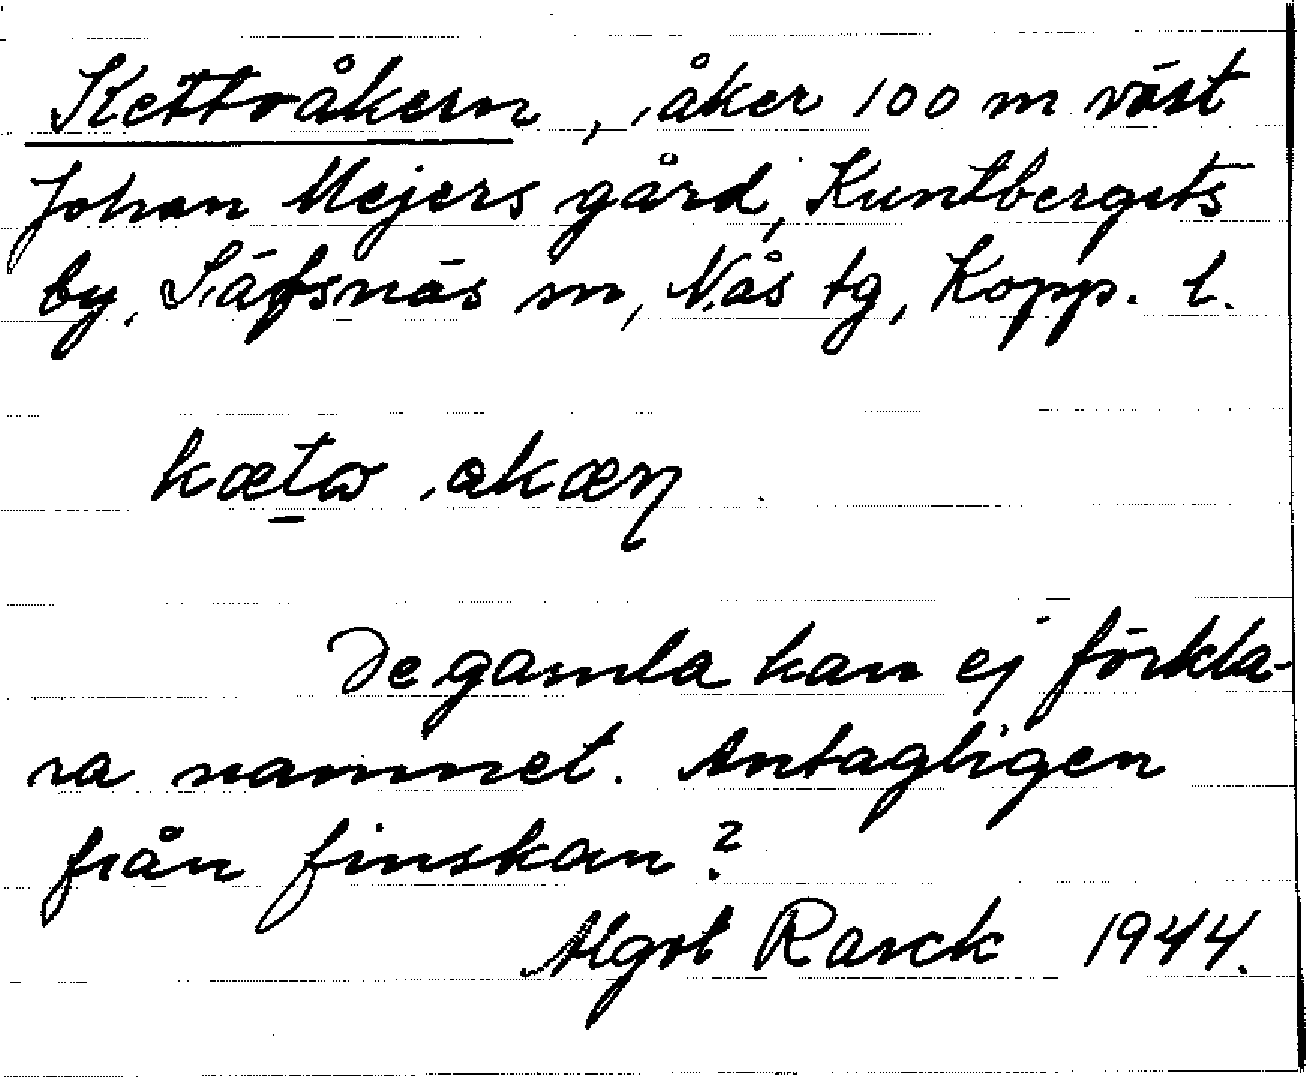 Kettoåkern, åker 100 m väst
Johan Mejers gård, Kuntbergets
by, Säfsnäs sn, Nås tg, Kopp. l.
kætω ,akæŋ
De gamla kan ej förkla-
ra namnet. Antagligen
från finskan?
Algot Rarck 1944.